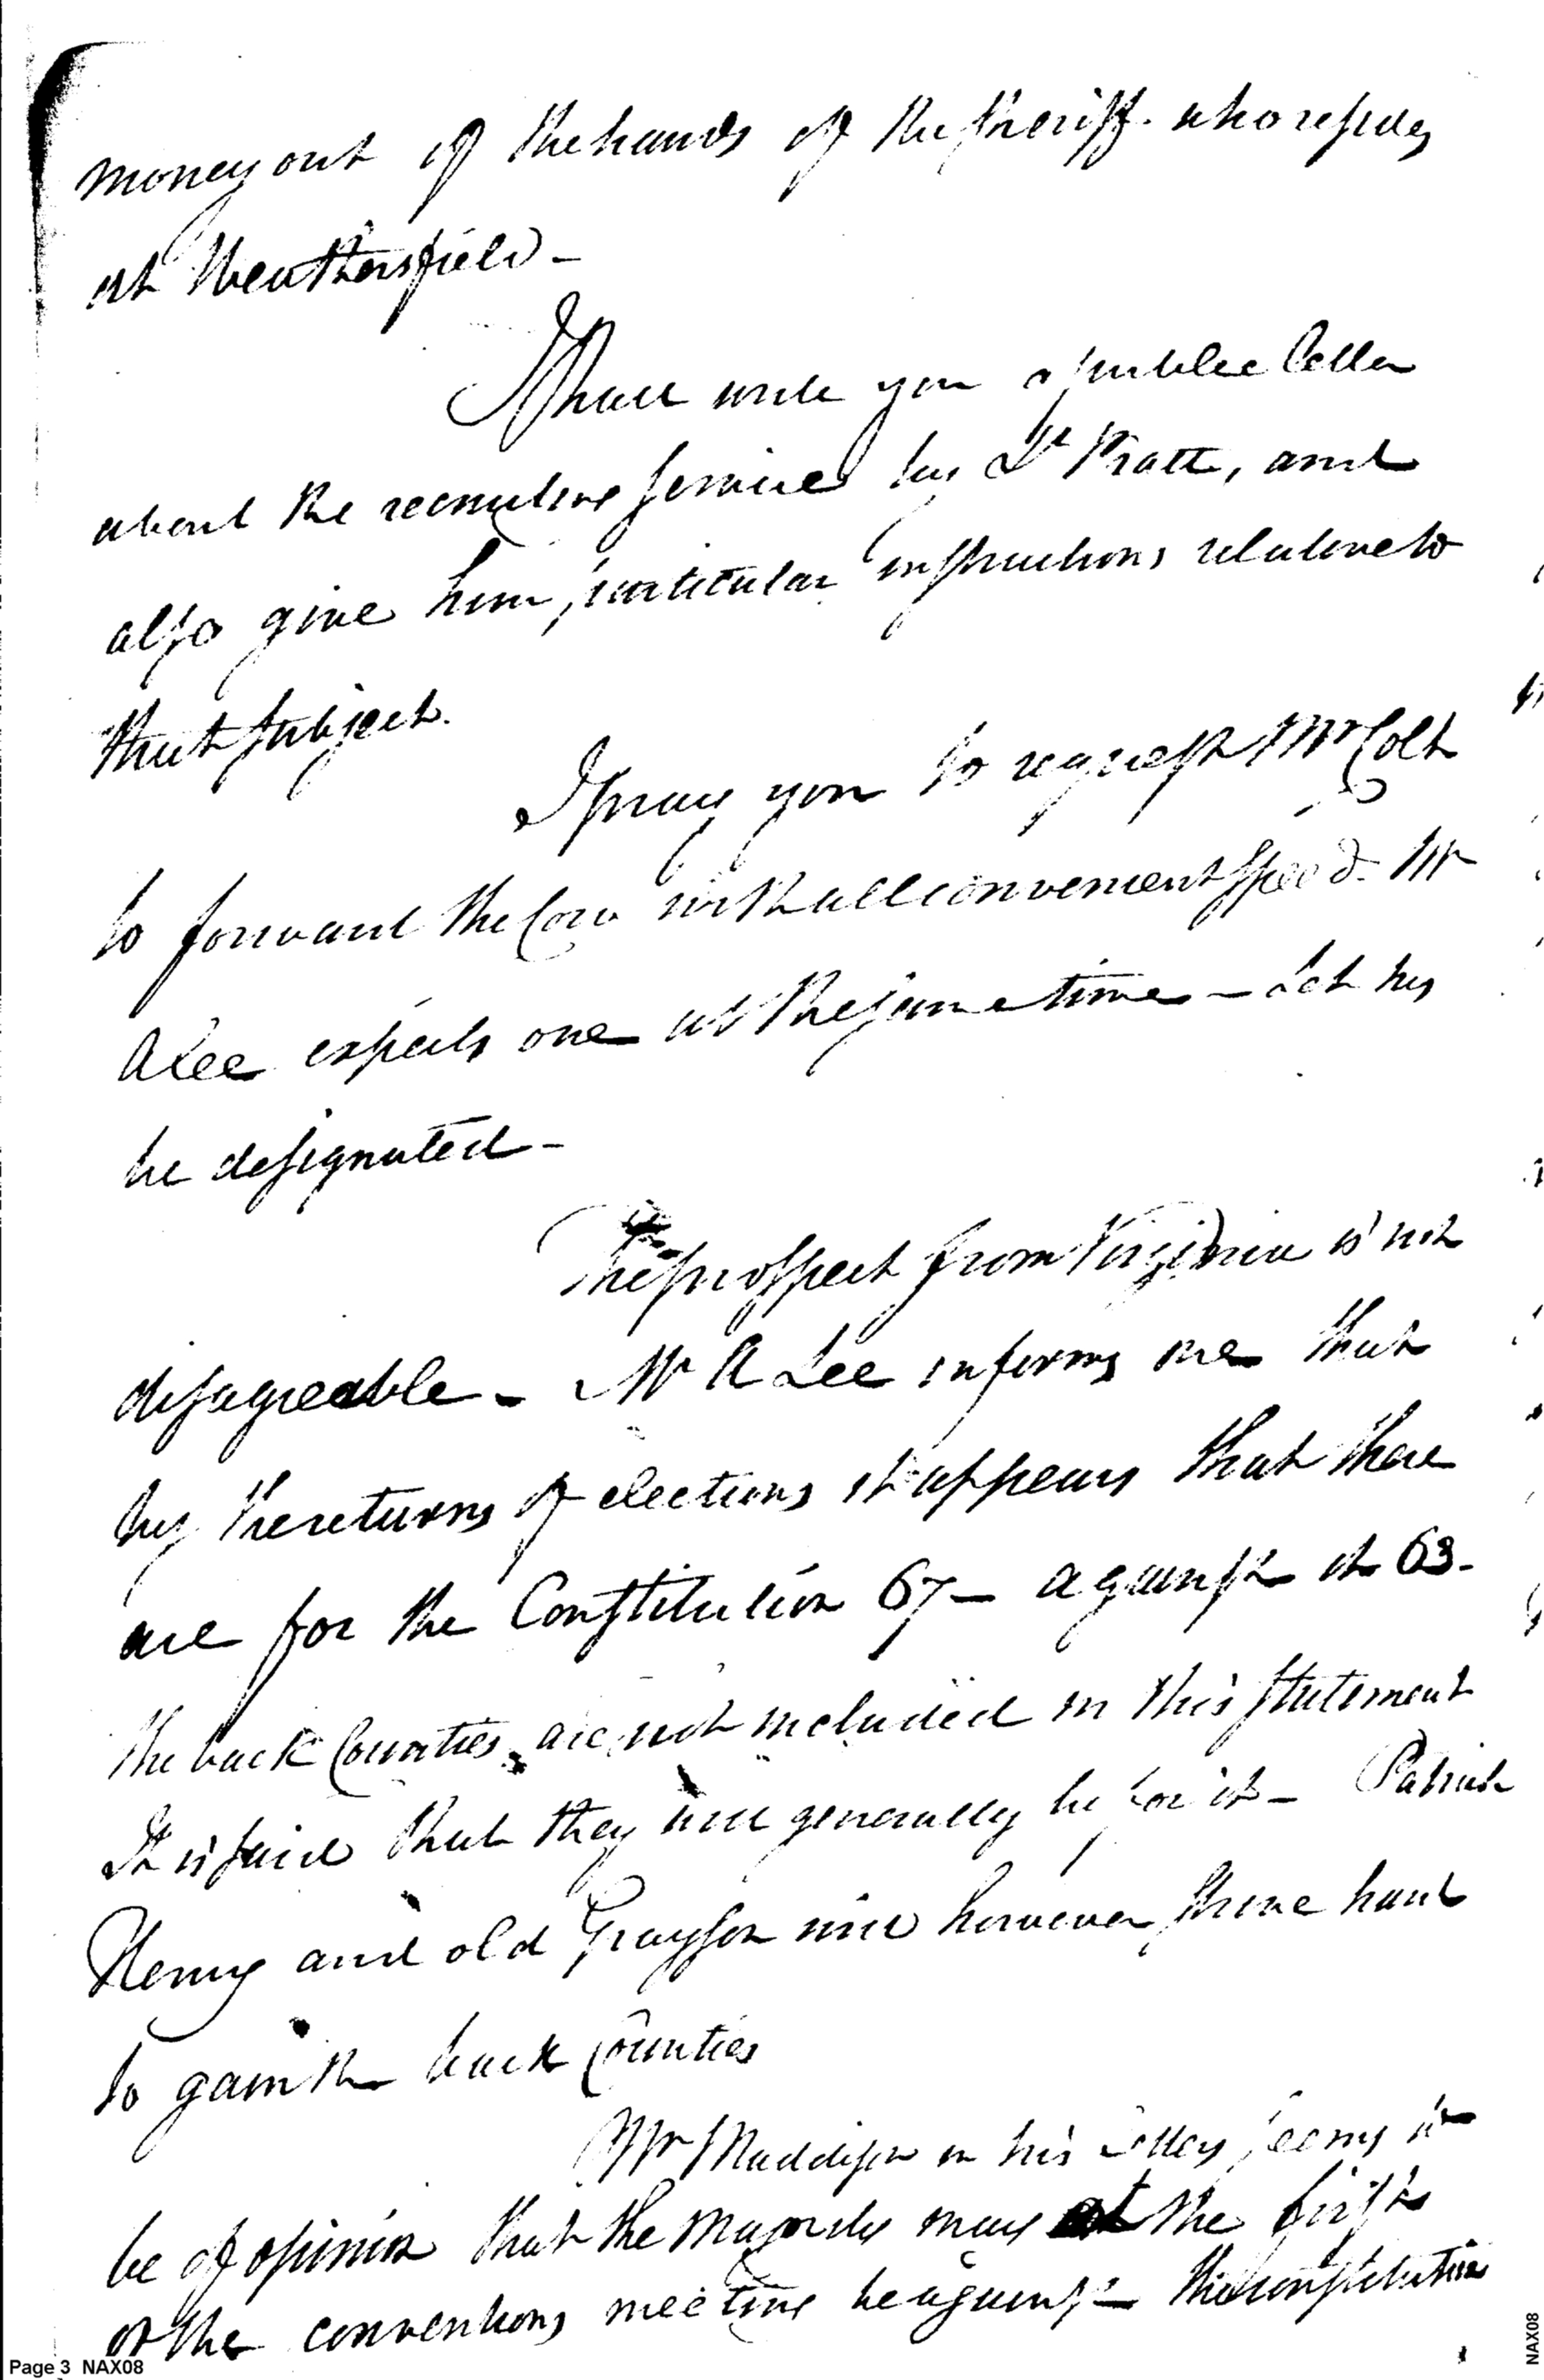 money out of the hands of the sheriff who resides
at Weathersfield -
I shall write you a public letter
about the recruiting service by Lt Pratt, and
also give him particular instructions relative to
that subject.
I pray you to request Mr Colt
to forward the Cow with all convenient speed. Mr
A Lee expects one at the same time - Let his
be designated -
The prospect from Virginia is not
disagreeable - Mr A Lee informs me that
by the returns of elections it appears that there
are for the Constitution 67 - against it 63 -
the back Counties are not included in this statement
It is said that they will generally be for it - Patrick
Henry and old Grayson will however strive hard
to gain the back Counties
Mr Maddison in his letters seems to
be of opinion that the Majority may at the first
of the conventions meeting be against the constitution
Page 3 NAX08
NAX08